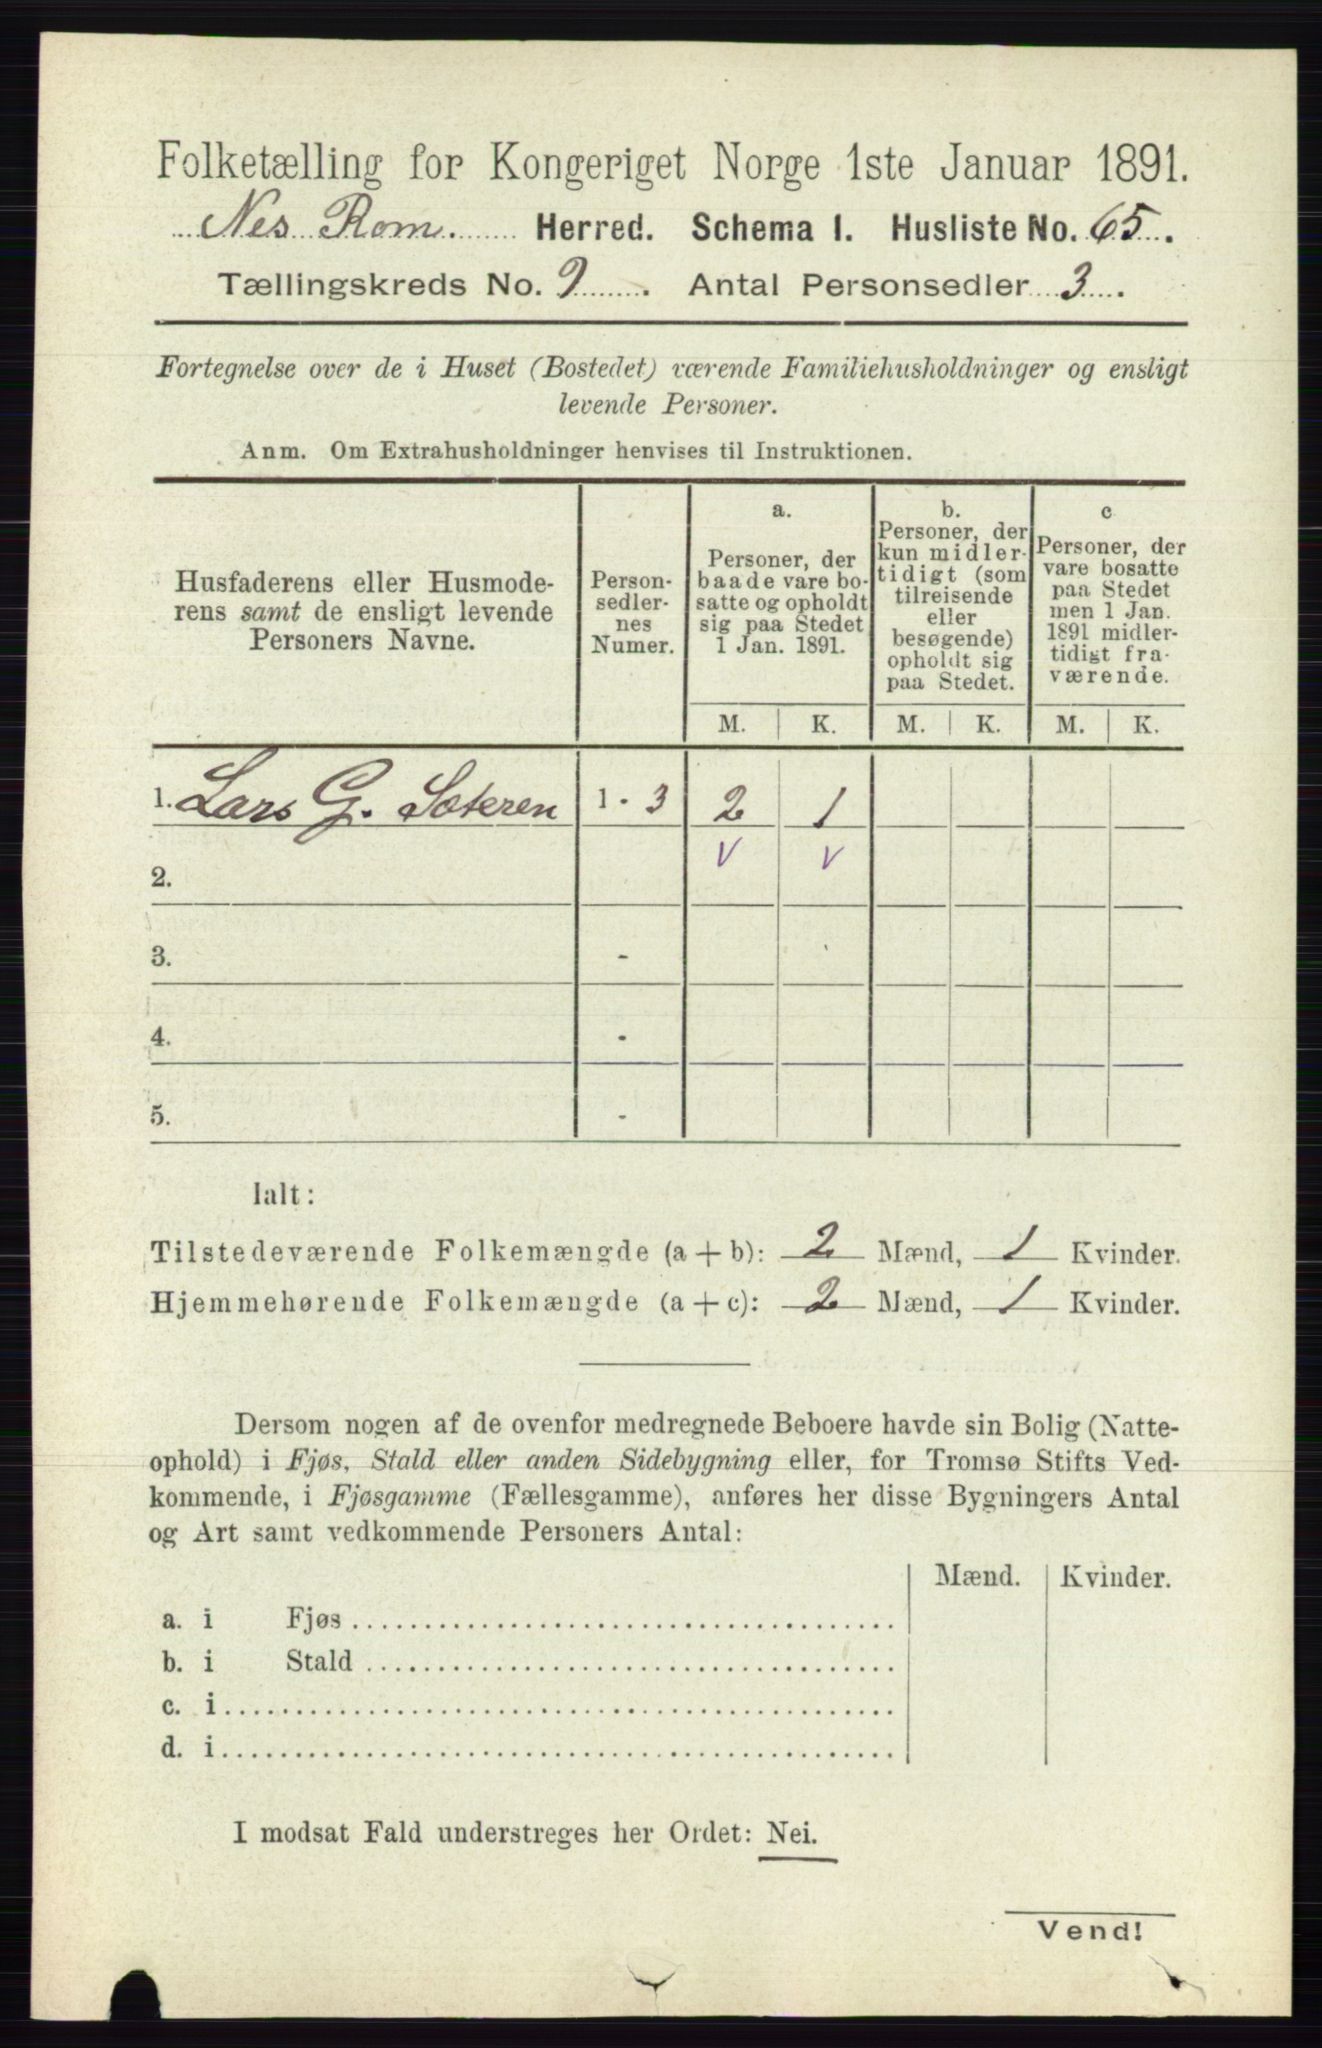 Folketælling for Kongeriget Norge 1ste Januar 1891.
Nes Rom. Herred. Schema I. Husliste No. 65.
Tællingskreds No. 9. Antal Personsedler 3.
Fortegnelse over de i Huset (Bostedet) værende Familiehusholdninger og ensligt
levende Personer.
Anm. Om Extrahusholdninger henvises til Instruktionen.
Husfaderens eller Husmode-
rens samt de ensligt levende
Personers Navne.
Person-
sedler-
nes
Numer.
a.
Personer, der
baade vare bo-
satte og opholdt
sig paa Stedet
1 Jan. 1891.
b.
Personer, der
kun midler-
tidigt (som
tilreisende
eller
besøgende)
opholdt sig
paa Stedet.
c
Personer, der
vare bosatte
paa Stedet
men 1 Jan.
1891 midler-
tidigt fra-
værende.
M. K. M. K. M. K.
1. Lars G. Sæteren 1 - 3 2 1
v v
2.
3. -
4. -
5. -
Ialt:
Tilstedeværende Folkemængde (a + b): 2 Mænd, 1 Kvinder.
Hjemmehørende Folkemængde (a + c): 2 Mænd, 1 Kvinder.
Dersom nogen af de ovenfor medregnede Beboere havde sin Bolig (Natte-
ophold) i Fjøs, Stald eller anden Sidebygning eller, for Tromsø Stifts Ved-
kommende, i Fjøsgamme (Fællesgamme), anføres her disse Bygningers Antal
og Art samt vedkommende Personers Antal:
Mænd. Kvinder.
a. i Fjøs
b. i Stald
c. i
d. i
I modsat Fald understreges her Ordet: Nei.
Vend!